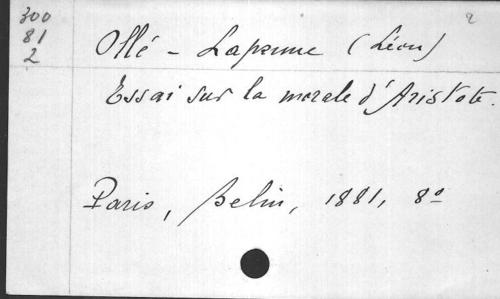 300
81
2
2
Ollé-Laprune (Léon)
Essai sur la morale d'Aristote.
Paris, Belin, 1881, 8º